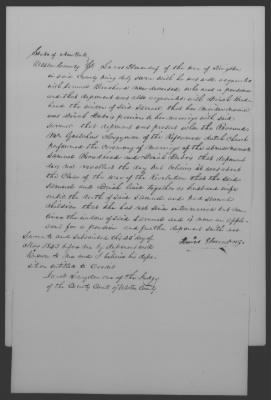 State of New York
Ulster County SS Lucas Elmendorf of the Town of Kingston
in said County being duly sworn saith he was well acquainted
with Samuel Broadhead now deceased who was a pensioner
and that deponent was also acquainted with Dinah Broad
head the widow of Said Samuel that her maiden name
was Dinah previous to her marriage with said
Samuel that deponent was present when the Reverend
Mr Clergyman of the Reformed dutch Church
performed the Ceremony of marriage of the above named
Samuel Broadhead and Dinah that deponent
does not recollect the day but believes it was about
the Close of the War of the Revolution that the said
Samuel and Dinah lived together as husband & wife
until the death of said Samuel and had several
children that she has not since intermarried but con
tinues the widow of said Samuel and is now an appli
cant for a pension and further deponent saith not
Sworn and subscribed this day of
May 1843 before me by deponent well
known to me and I believe his depo
sition entitled to Credit
one of the Judges
of the County Court of Ulster County